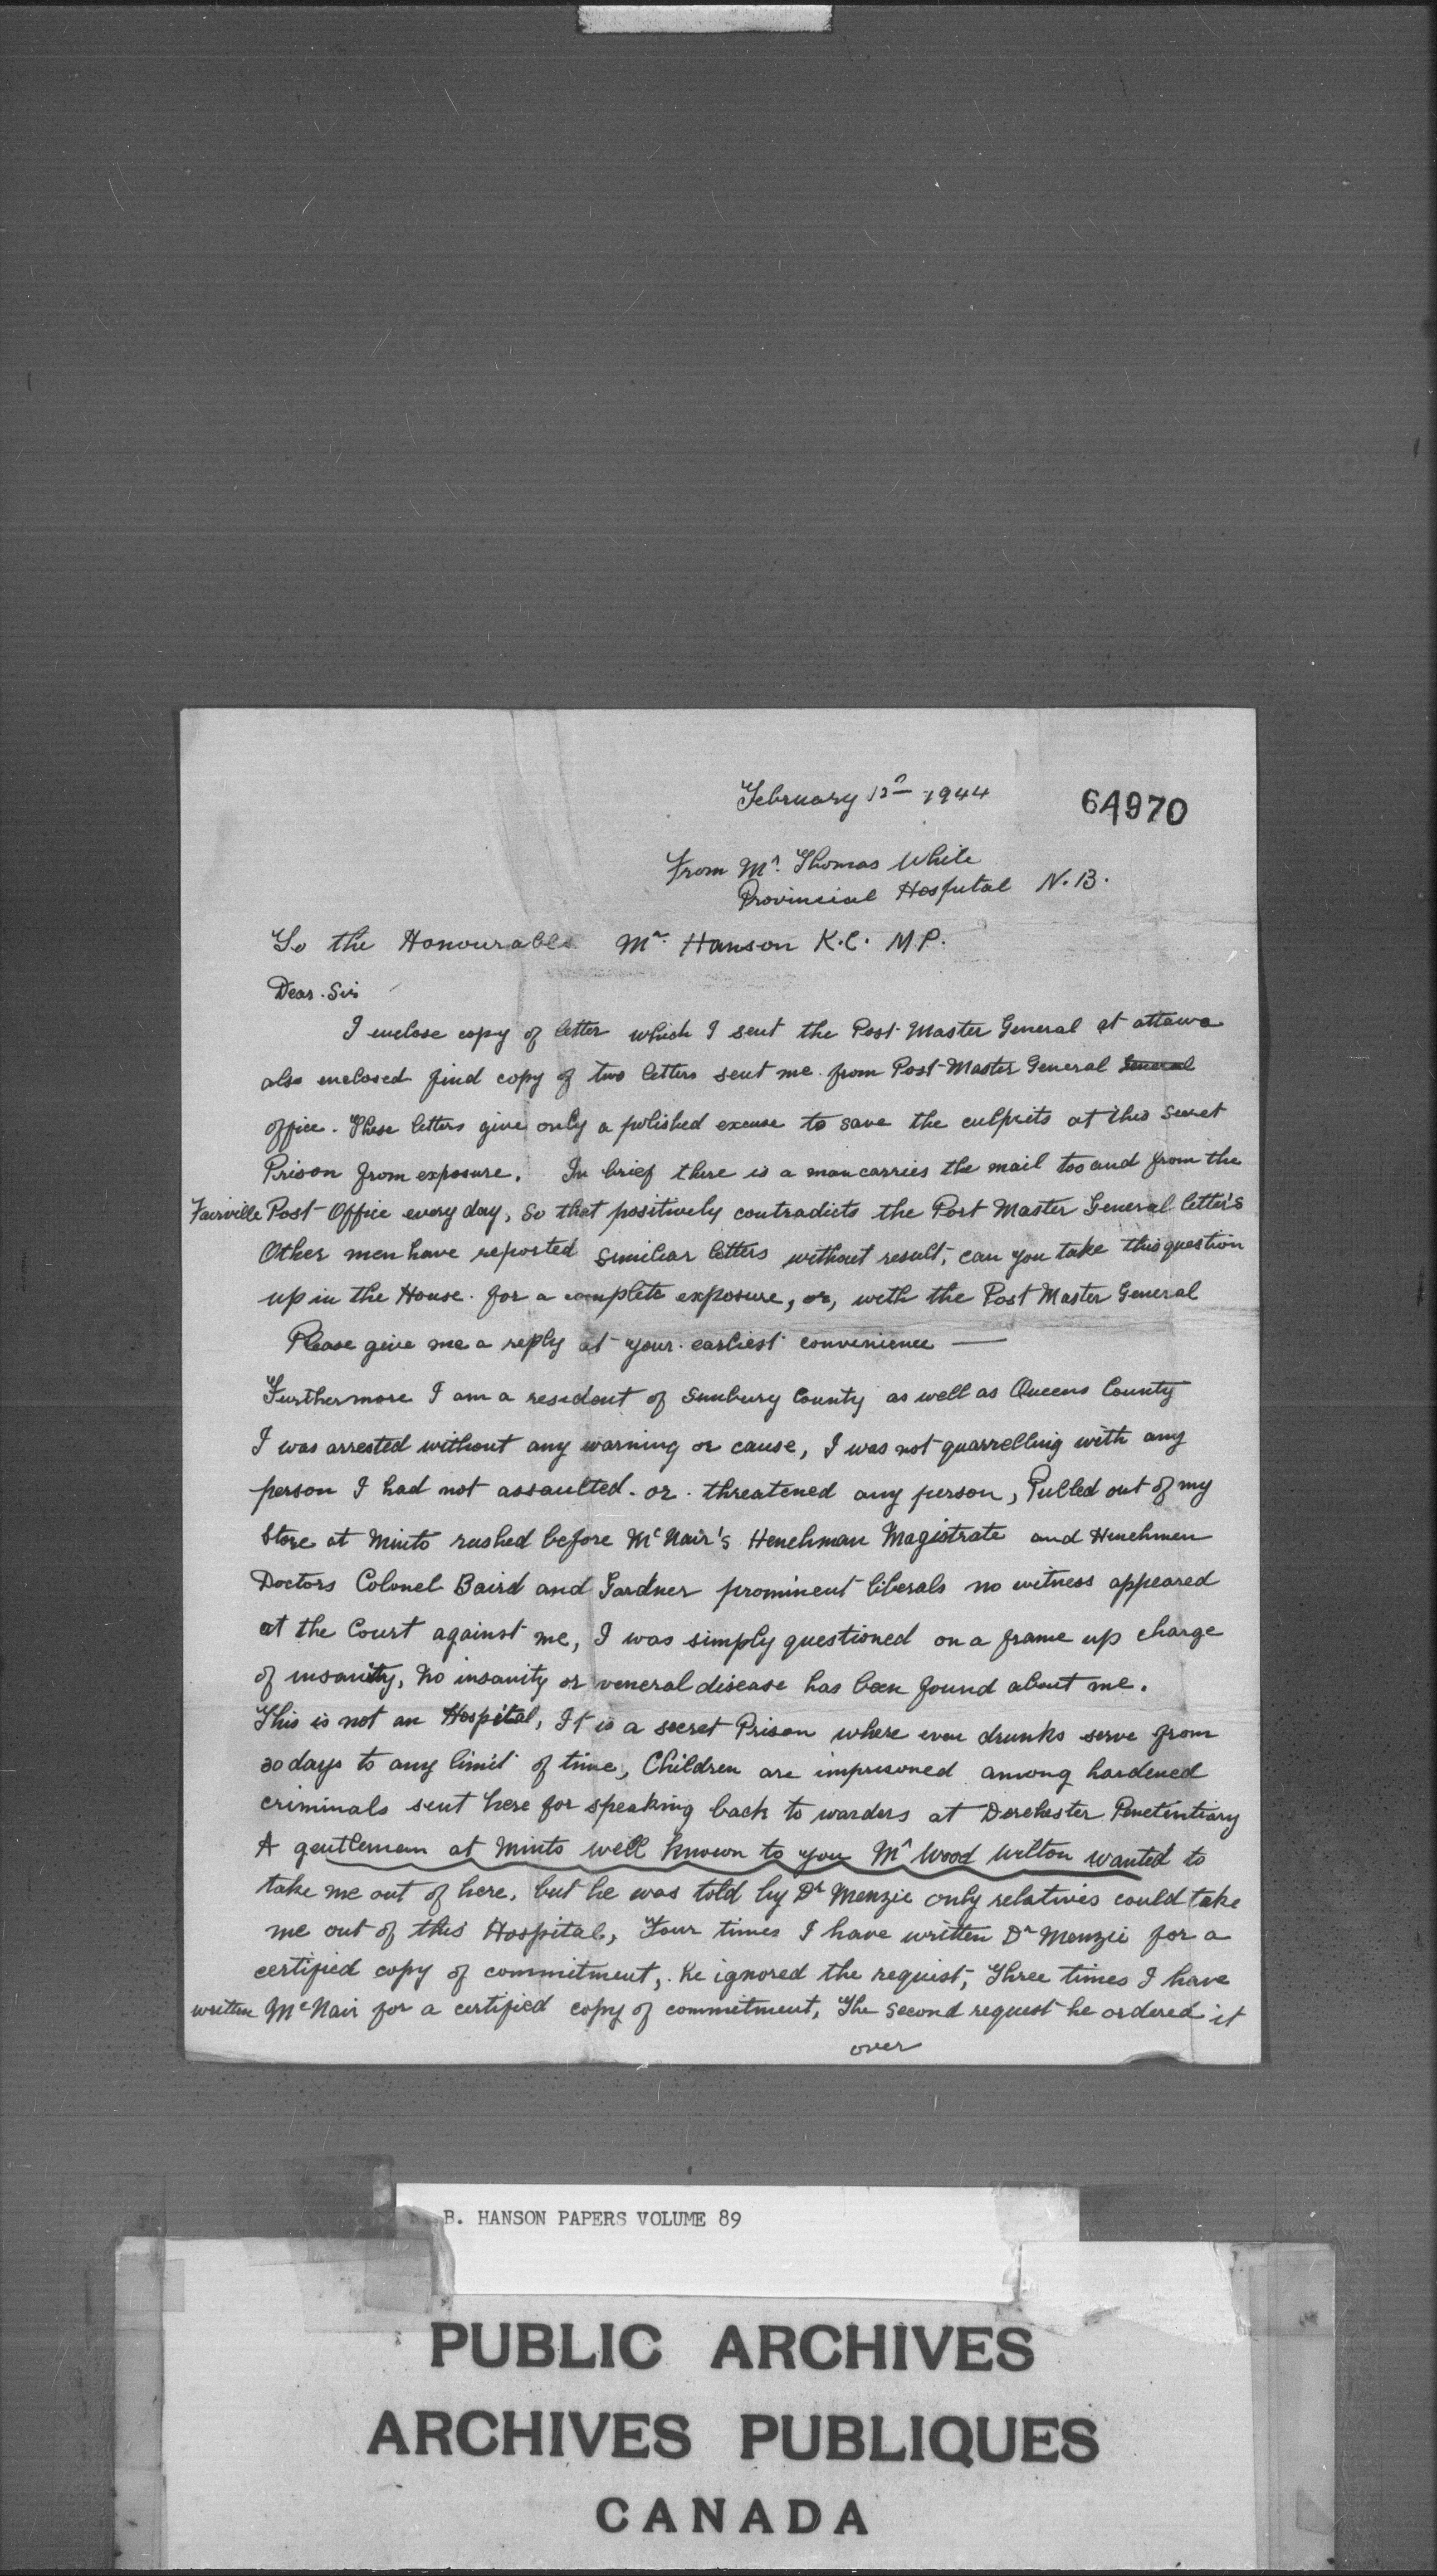 February 12th 1944
64970
From Mr. Thomas White
Provincial Hospital N.B.
To the Honourable Mr. Hanson K.C. M.P.
Dear. Sir
I enclose copy of letter which I sent the Post-Master General at Ottawa
also enclosed find copy of two letters sent me from Post-Master General General
office. These letters give only a polished excuse to save the culprits at this Secret
Prison from exposure. In brief there is a man carries the mail too and from the
Fairville Post-Office every day, So that positively contradicts the Post Master General letter's
Other men have reported similiar letters without result, can you take this question
up in the House. for a complete exposure, or, with the Post Master General
Please give me a reply at your earliest convenience —
Furthermore I am a resident of Sunbury County as well as Queens County
I was arrested without any warning or cause, I was not quarrelling with any
person I had not assaulted. or. threatened any person, Pulled out of my
Store at Minto rushed before McNair's Henchman Magistrate and Henchmen
Doctors Colonel Baird and Gardner prominent liberals no witness appeared
at the Court against me, I was simply questioned on a frame up charge
of insanity, no insanity or veneral disease has been found about me.
This is not an Hospital, It is a secret Prison where even drunks serve from
30 days to any limit of time, Children are imprisoned among hardened
criminals sent here for speaking back to warders at Dorchester Penetintiary
A gentleman at Minto well known to you Mr Wood Wilton wanted to
take me out of here, but he was told by Dr Menzie only relatives could take
me out of this Hospital, Four times I have written Dr Menzie for a
certified copy of commitment, he ignored the request, Three times I have
written McNair for a certified copy of commitment, The second request he ordered it
over
B. HANSON PAPERS VOLUME 89
PUBLIC ARCHIVES
ARCHIVES PUBLIQUES
CANADA